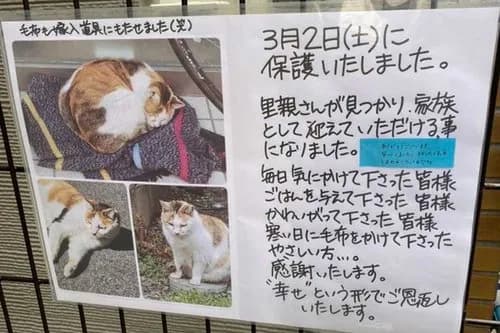 毛布も嫁入道具にもたせました(笑)
3月2日(土)に
保護いたしました。
里親さんが見つかり、家族
として迎えていただける事
になりました。
毎日気にかけて下さった皆様
ごはんを与えて下さった皆様
かわいがって下さった皆様
寒い日に毛布をかけて下さった
やさしい方…。
感謝いたします。
"幸せ"という形でご恩返し
いたします。